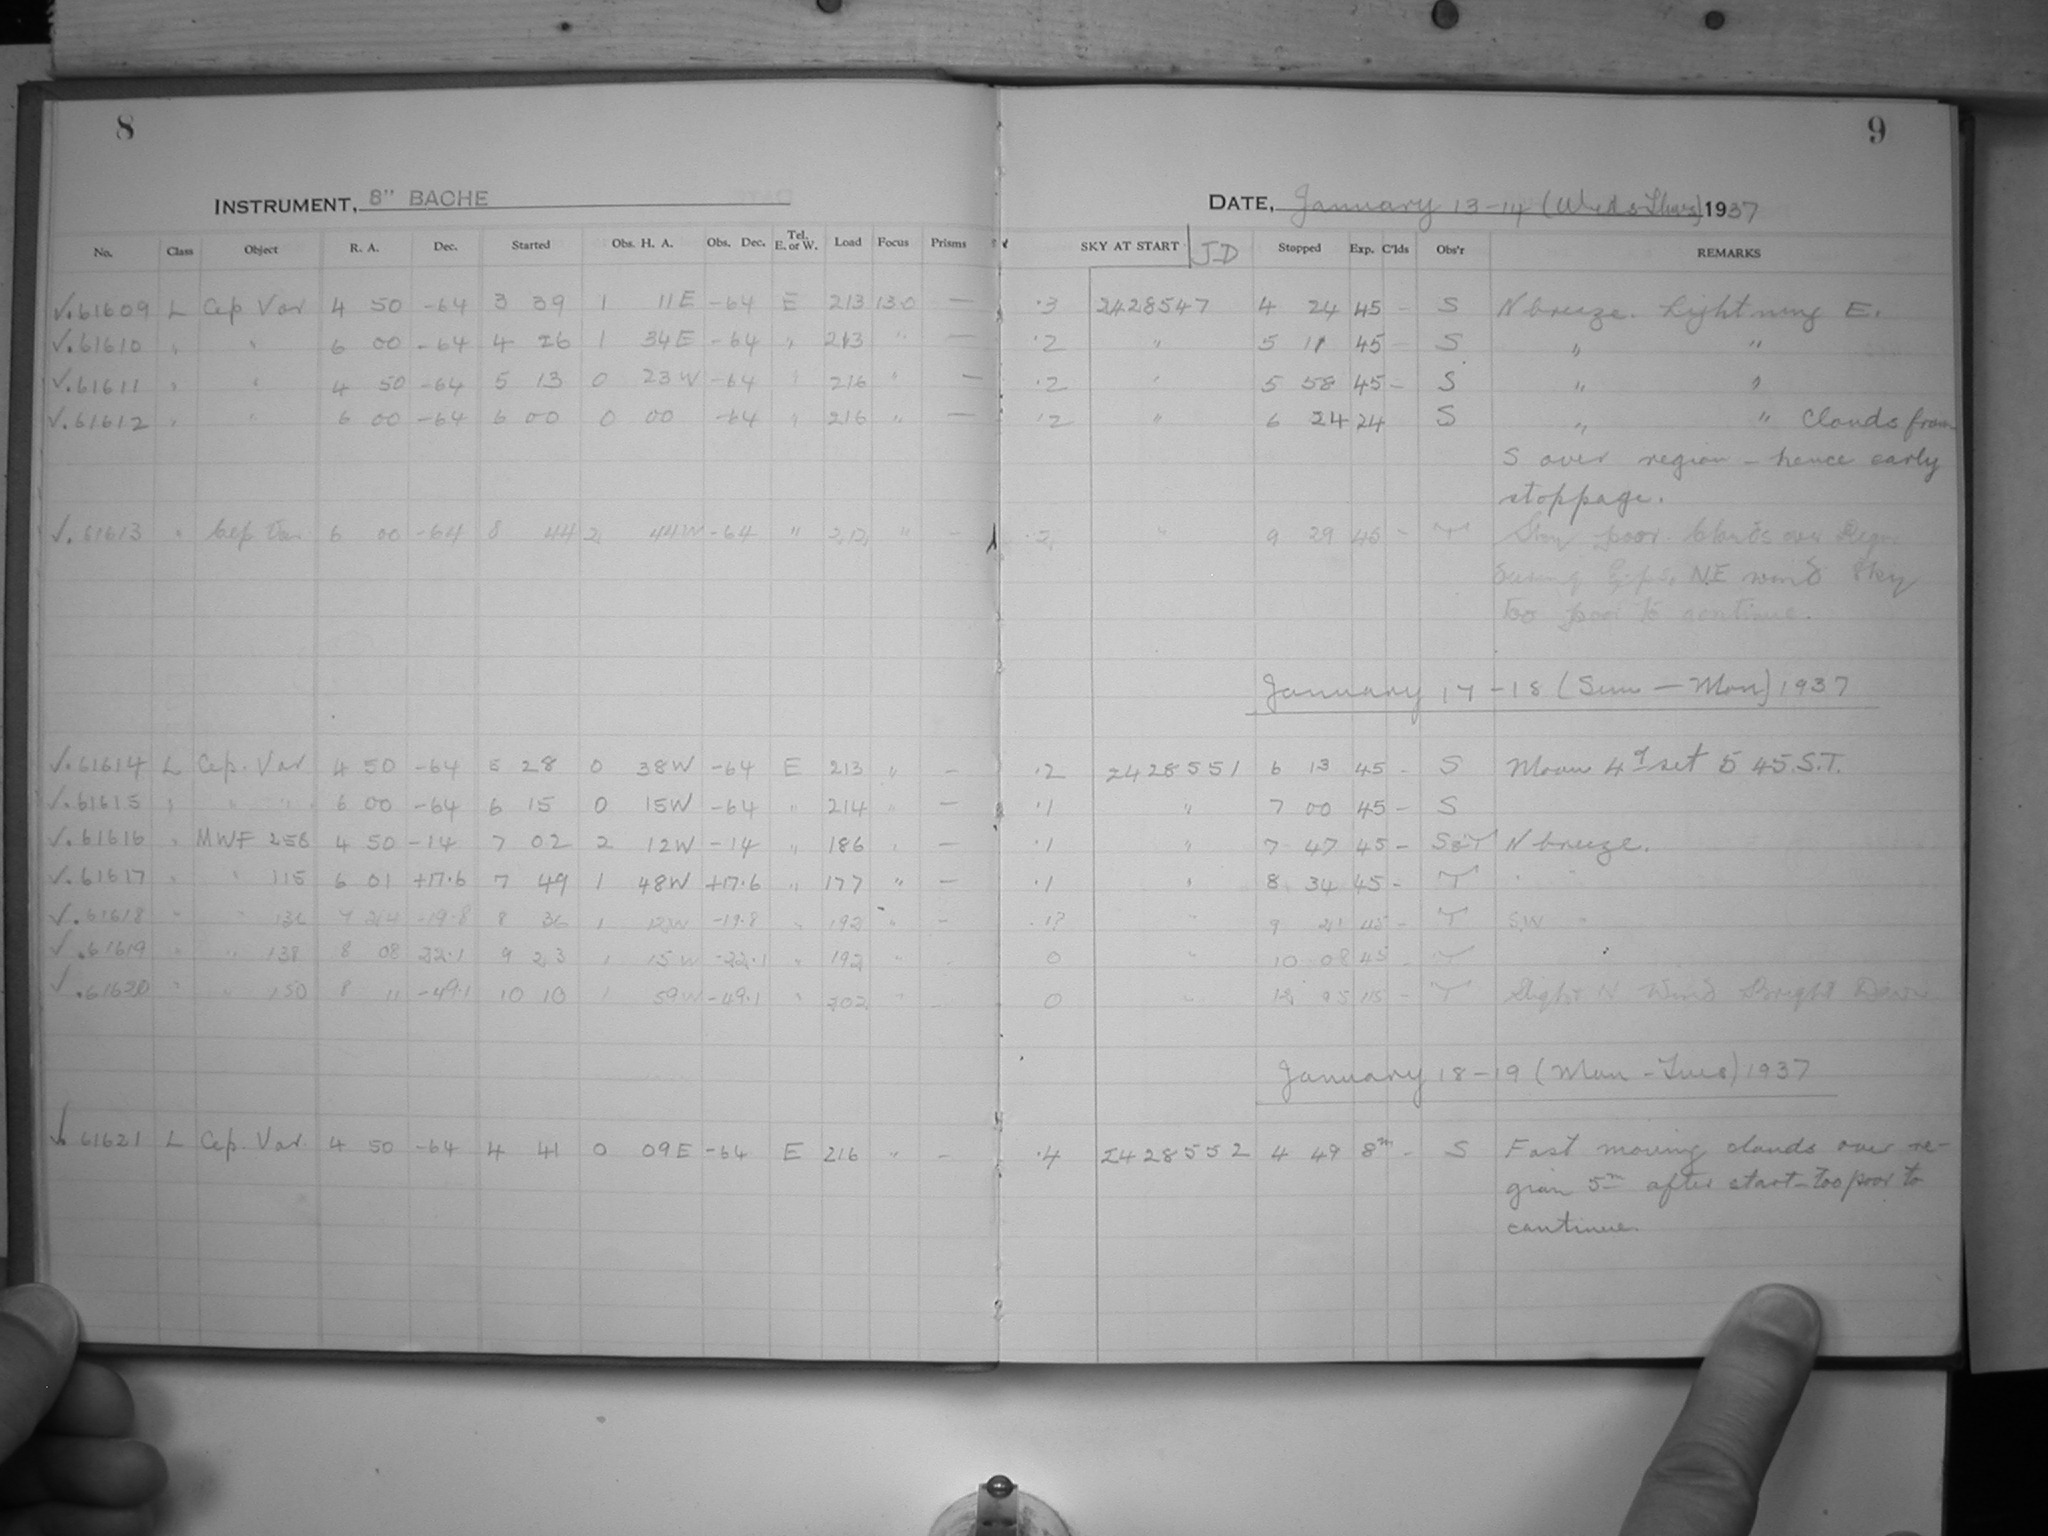 8
9
INSTRUMENT, 8" BACHE
DATE, January 13-14 (Wed & Thurs) 1937
No. Class Object R. A. Dec. Started Obs. H. A. Obs. Dec. Tel. E. or W. Load Focus Prisms SKY AT START JD Stopped Exp. C'lds Obs'r REMARKS
√.61609 L Cep Var 4 50 -64 3 39 1 11E -64 E 213 130 — .3 2428547 4 24 45 - S N breeze. Lightning E.
√.61610 " " 6 00 -64 4 26 1 34E -64 " 213 " — .2 " 5 11 45 - S " "
√.61611 " " 4 50 -64 5 13 0 23W -64 " 216 " — .2 " 5 58 45 - S " "
√.61612 " " 6 00 -64 6 00 0 00 -64 " 216 " — .2 " 6 24 24 S " " Clouds from
S over region - hence early
stoppage.
√.61613 " Cep Var 6 00 -64 8 44 2 44W -64 " 212 " — .2 " 9 29 45 - T Sky poor. Clouds over Region
during NE wind Sky
too poor to continue.
January 17-18 (Sun — Mon) 1937
√.61614 L Cep. Var 4 50 -64 5 28 0 38W -64 E 213 " — .2 2428551 6 13 45 - S Moon 4d set 5 45 S.T.
√.61615 " " " 6 00 -64 6 15 0 15W -64 " 214 " — .1 " 7 00 45 - S
√.61616 " MWF 256 4 50 -14 7 02 2 12W -14 " 186 " — .1 " 7 47 45 - S&T N breeze.
√.61617 " " 115 6 01 +17.6 7 49 1 48W +17.6 " 177 " — .1 " 8 34 45 - T " "
√.61618 " " 136 7 24 -19.8 8 36 1 12W -19.8 " 192 " - .1? " 9 21 45 - T SW "
√.61619 " " 138 8 08 22.1 9 23 1 15W -22.1 " 192 " - 0 " 10 08 45 - T "
√.61620 " " 150 8 11 -49.1 10 10 1 59W -49.1 " 202 " - 0 " 12 05 115 - T Slight N Wind Bright Dawn
January 18-19 (Mon - Tues) 1937
√.61621 L Cep. Var. 4 50 -64 4 41 0 09E -64 E 216 " - .4 2428552 4 49 8m - S Fast moving clouds over re-
gion 5m after start - too poor to
continue.